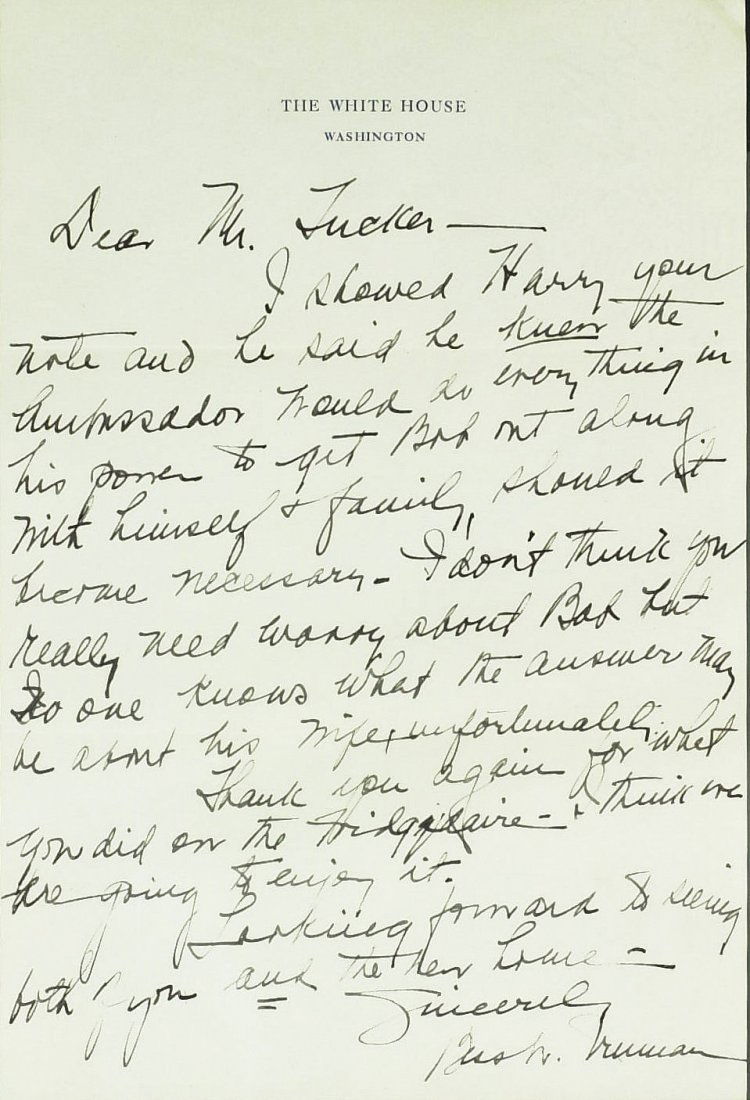 THE WHITE HOUSE
WASHINGTON
Dear Mr. Tucker —
I showed Harry your
note and he said he knew the
Ambassador would do everything in
his power to get Bob out along
with himself & family, should it
become necessary - I don't think you
really need worry about Bob but
no one knows what the answer may
be about his wife, unfortunately.
Thank you again for what
you did on the Fridgidaire - I think we
are going to enjoy it.
Looking forward to seeing
both of you and the new home -
Sincerely
Bess W. Truman